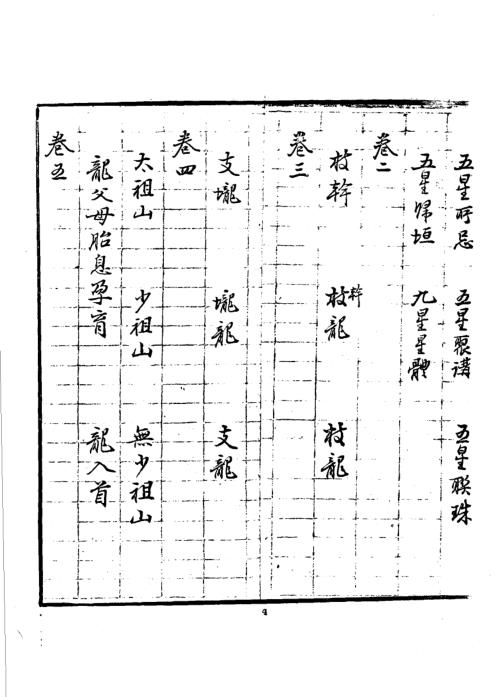 五星所忌 五星聚講 五星聯珠
五星歸垣 九星星體
卷二
枝幹 幹枝龍 枝龍
卷三
支壠 壠龍 支龍
卷四
太祖山 少祖山 無少祖山
龍父母胎息孕育 龍入首
卷五
4